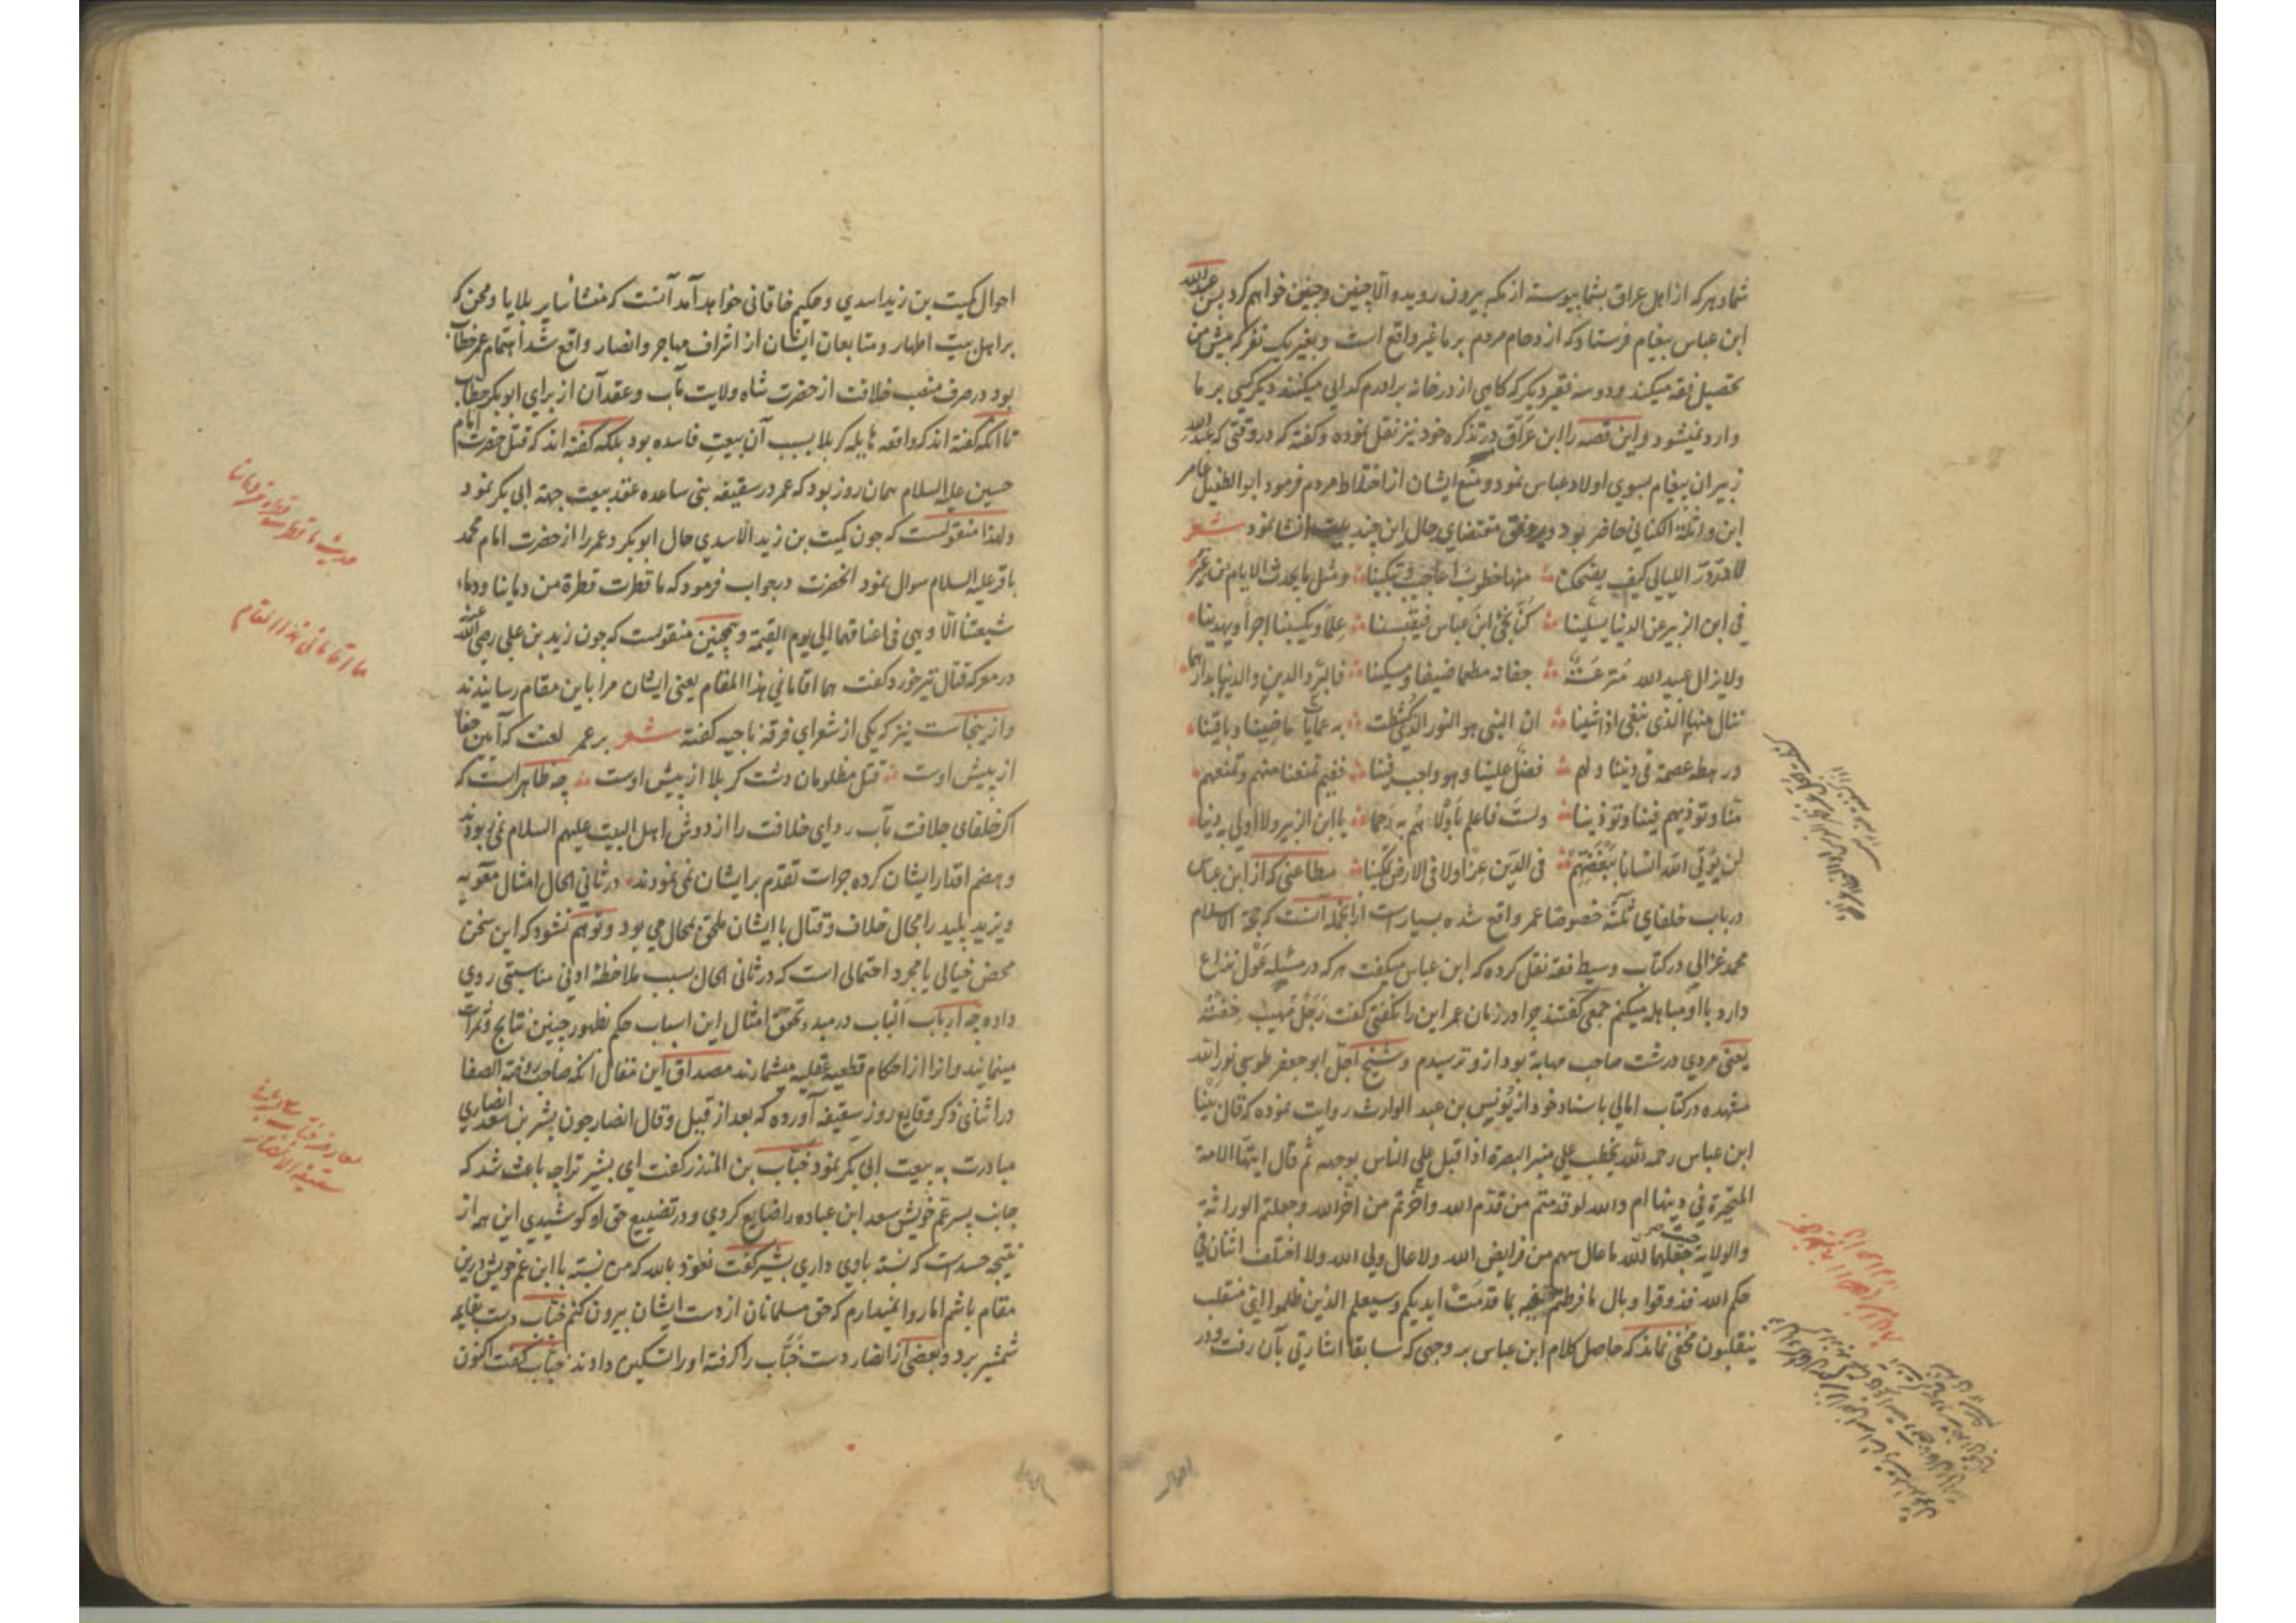 شما و هر که از اهل عراق بشما پیوسته از مکه بیرون روید و الا چنین و چنین خواهم کرد پس عبدالله
ابن عباس پیغام فرستاد که ازدحام مردم بر ما غیر واقع است و بغیر یک نفر که پیش من
تحصیل فقه میکند و دو سه فقیر دیگر که کاهی از در خانه برادرم کدایی میکنند دیگر کسی بر ما
وارد نمیشود و این قصه را ابن عراق در تذکره خود نیز نقل نموده و کفته که در وقتی که عبدالله
زبیر ان پیغام بسوی اولاد عباس نمود و منع ایشان از اختلاط مردم فرمود ابو الطفیل عامر
ابن واثلة الکنانی حاضر بود و بر وفق مقتضای حال این چند بیت انشا نمود شعر
لله در اللیالی کیف یضحکنا منها خطوب اعاجیب و تبکینا و مثل ما یحدث الایام من غیر
فی ابن الزبیر عن الدنیا یسلینا کنا نجی ابن عباس فیقبسنا علما و یکسبنا اجرا و یهدینا
و لا یزال عبید الله مترعة جفانه مطعما ضیفا و مسکینا فالبر و الدین و الدنیا بدارهما
ننال منها الذی نبغی اذا شینا ان النبی هو النور الذی کشطت به عمایات ماضینا و باقینا
و رهطه عصمة فی دیننا و لهم فضل علینا و هو واجب فینا ففیم تمنعنا منهم و تمنعهم
منا و توذیهم فینا و توذینا و لست فاعلم باولاهم به رحما یا ابن الزبیر و لا اولی به دینا
لن یؤتی الله انسانا ببغضهم فی الدین عزا و لا فی الارض تمکینا مطاعنی که از ابن عباس
در باب خلفای ثلثه خصوصا عمر واقع شده بسیار است از انجمله آنست که حجة الاسلام
محمد غزالی در کتاب وسیط فقه نقل کرده که ابن عباس میکفت هر که در مسئله عول نزاع
دارد با او مباهله میکنم جمعی کفتند چرا در زمان عمر این را نکفتی کفت رجل مهیب خفته
یعنی مردی درشت صاحب مهابة بود ازو ترسیدم و شیخ اجل ابو جعفر طوسی نور الله
مشهده در کتاب امالی باسناد خود از یونس بن عبد الوارث روایت نموده که قال بینا
ابن عباس رحمه الله یخطب علی منبر البصرة اذا قبل علی الناس بوجهه ثم قال ایتها الامة
المتحیرة فی دینها ام والله لو قدمتم من قدم الله و اخرتم من اخر الله و جعلتم الوراثة
و الولایة حیث جعلها الله ما عال سهم من فرایض الله و لا عال ولی الله و لا اختلف اثنان فی
حکم الله فذوقوا وبال ما فرطتم فیه بما قدمت ایدیکم و سیعلم الذین ظلموا ای منقلب
ینقلبون مخفی نماند که حاصل کلام ابن عباس بر وجهی که سابقا اشارتی بآن رفت و در
احوال
احوال کمیت بن زید اسدی و حکیم خاقانی خواهد آمد آنست که منشأ سایر بلایا و محن که
بر اهل بیت اطهار و متابعان ایشان از اشراف مهاجر و انصار واقع شد اهتمام عمر خطاب
بود در صرف منصب خلافت از حضرت شاه ولایت مآب و عقد آن از برای ابوبکر خطاب
تا انکه کفته اند که واقعه هایله کربلا بسبب آن بیعت فاسده بود بلکه کفته اند که قتل حضرت امام
حسین علیه السلام همان روز بود که عمر در سقیفه بنی ساعده عقد بیعت جهة ابی بکر نمود
و لهذا منقولست که چون کمیت بن زید الاسدی حال ابوبکر و عمر را از حضرت امام محمد
باقر علیه السلام سوال نمود انحضرت در جواب فرمود که ما قطرت قطرة من دماینا و دماء
شیعتنا الا و هی فی اعناقهما الی یوم القیمة و همچنین منقولست که چون زید بن علی رضی الله عنه
در معرکه قتال تیر خورد کفت هما اقامانی هذا المقام یعنی ایشان مرا باین مقام رسانیدند
و ازینجاست نیز که یکی از شعرای فرقه ناجیه کفته شعر بر عمر لعنت که آیین جفا
از پیش اوست قتل مظلومان دشت کربلا از پیش اوست چه ظاهر است که
اکر خلفای جلافت مآب ردای خلافت را از دوش اهل البیت علیهم السلام نمی ربودند
و هضم اقدار ایشان کرده جرات تقدم بر ایشان نمی نمودند در ثانی الحال امثال معویه
و یزید پلید را مجال خلاف و قتال با ایشان ملحق بمحال می بود و توهم نشود که این سخن
محض خیالی یا مجرد احتمالی است که در ثانی الحال بسبب ملاحظه ادنی مناسبتی روی
داده چه ارباب الباب در مبدء تحقق امثال این اسباب حکم بظهور چنین نتایج و ثمرات
مینمایند و انرا از احکام قطعیه عقلیه میشمارند مصداق این مقال انکه صاحب روضة الصفا
در اثنای ذکر وقایع روز سقیفه آورده که بعد از قیل و قال انصار چون بشیر بن سعد انصاری
مبادرت به بیعت ابی بکر نمود خباب بن المنذر کفت ای بشیر ترا چه باعث شد که
جانب پسر عم خویش سعد ابن عباده را ضایع کردی و در تضییع حق او کوشیدی این همه از
نتیجه حسد است که نسبه باوی داری بشیر کفت نعوذ بالله که من نسبه با ابن عم خویش درین
مقام باشم اما روا نمیدارم که حق مسلمانان از دست ایشان بیرون کنم خباب دست بقایمه
شمشیر برد و بعضی از انصار دست خباب را کرفته او را تسکین دادند خباب کفت اکنون
هما اقامانی هذا المقام